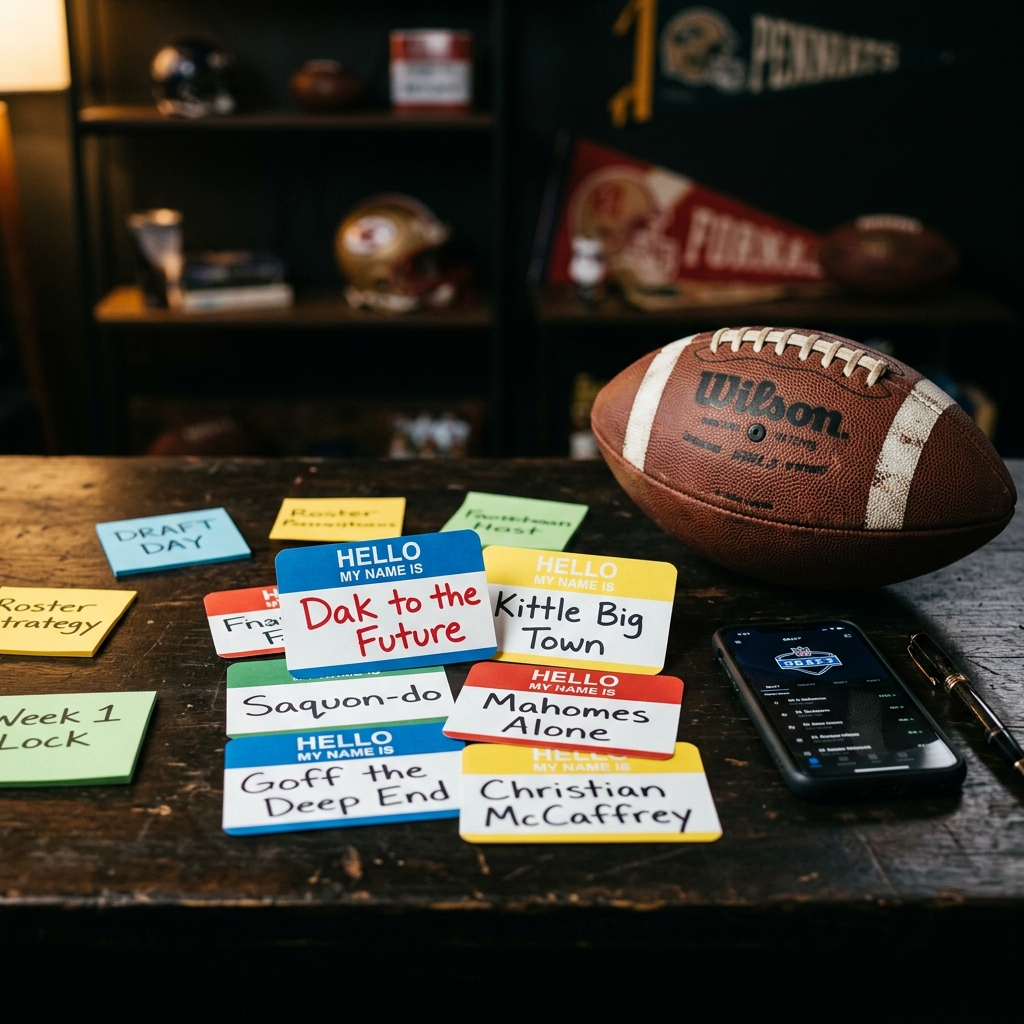 PENNRATS
FURNA
Wilson
DRAFT
DAY
Roster
Host
Roster
Week 1
Lock
HELLO
MY NAME IS
Dak to the
Future
HELLO
MY NAME IS
Kittle Big
Town
Saquon-do
HELLO
MY NAME IS
Mahomes
Alone
HELLO
MY NAME IS
Goff the
Deep End
HELLO
MY NAME IS
Christian
McCaffrey
DRAFT